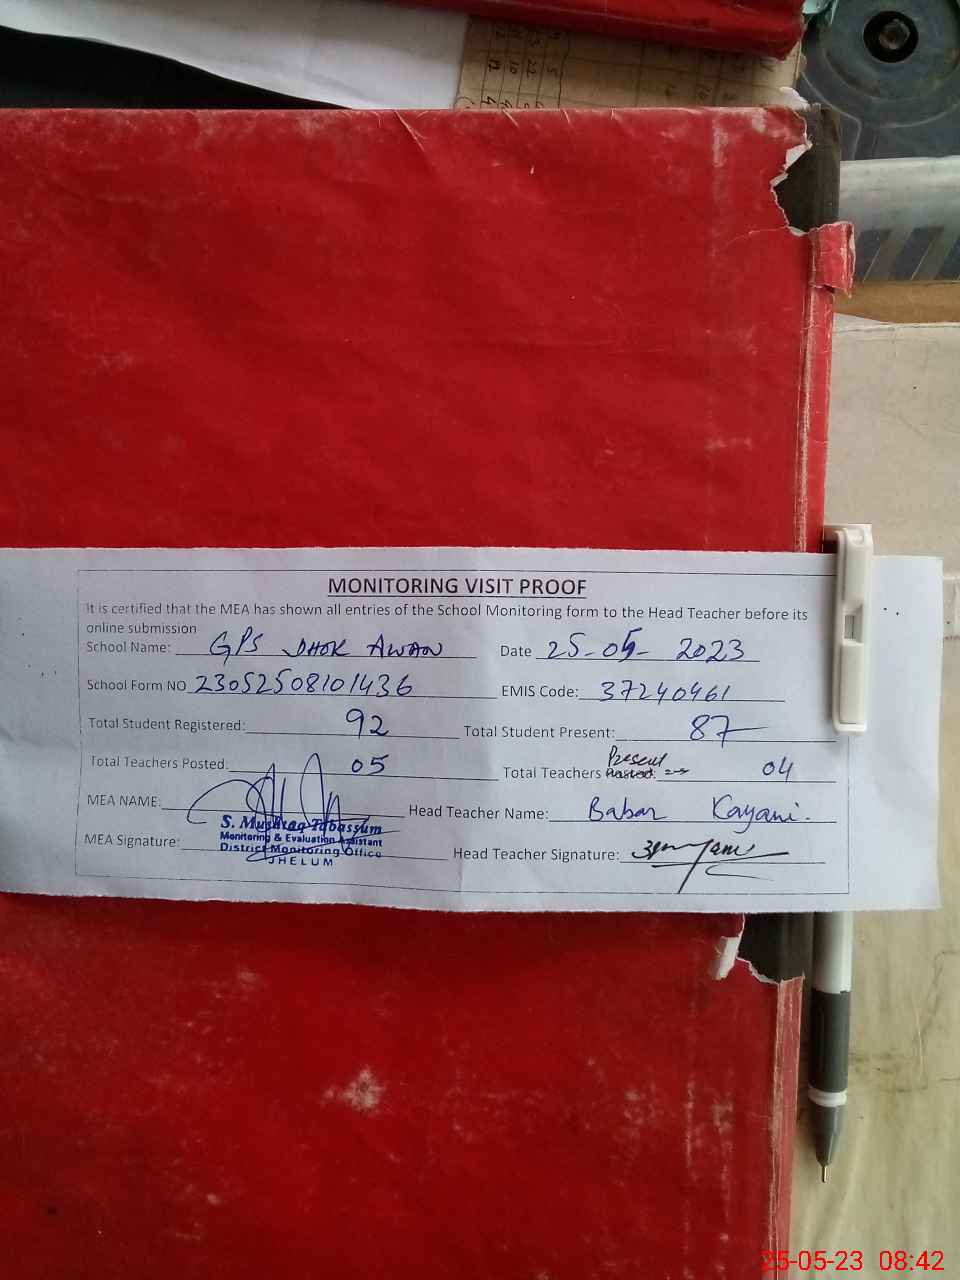 MONITORING VISIT PROOF
It is certified that the MEA has shown all entries of the School Monitoring form to the Head Teacher before its
online submission
School Name: GPS DHOK AWAN Date 25-05-2023
School Form NO 23052508101436 EMIS Code: 37240461
Total Student Registered: 92 Total Student Present: 87
Present
Total Teachers Posted: 05 Total Teachers Posted: 04
MEA NAME: Head Teacher Name: Babar Kayani.
S. Mushtaq Tabassum
Monitoring & Evaluation Assistant
MEA Signature: Head Teacher Signature:
District Monitoring Office
JHELUM
25-05-23 08:42